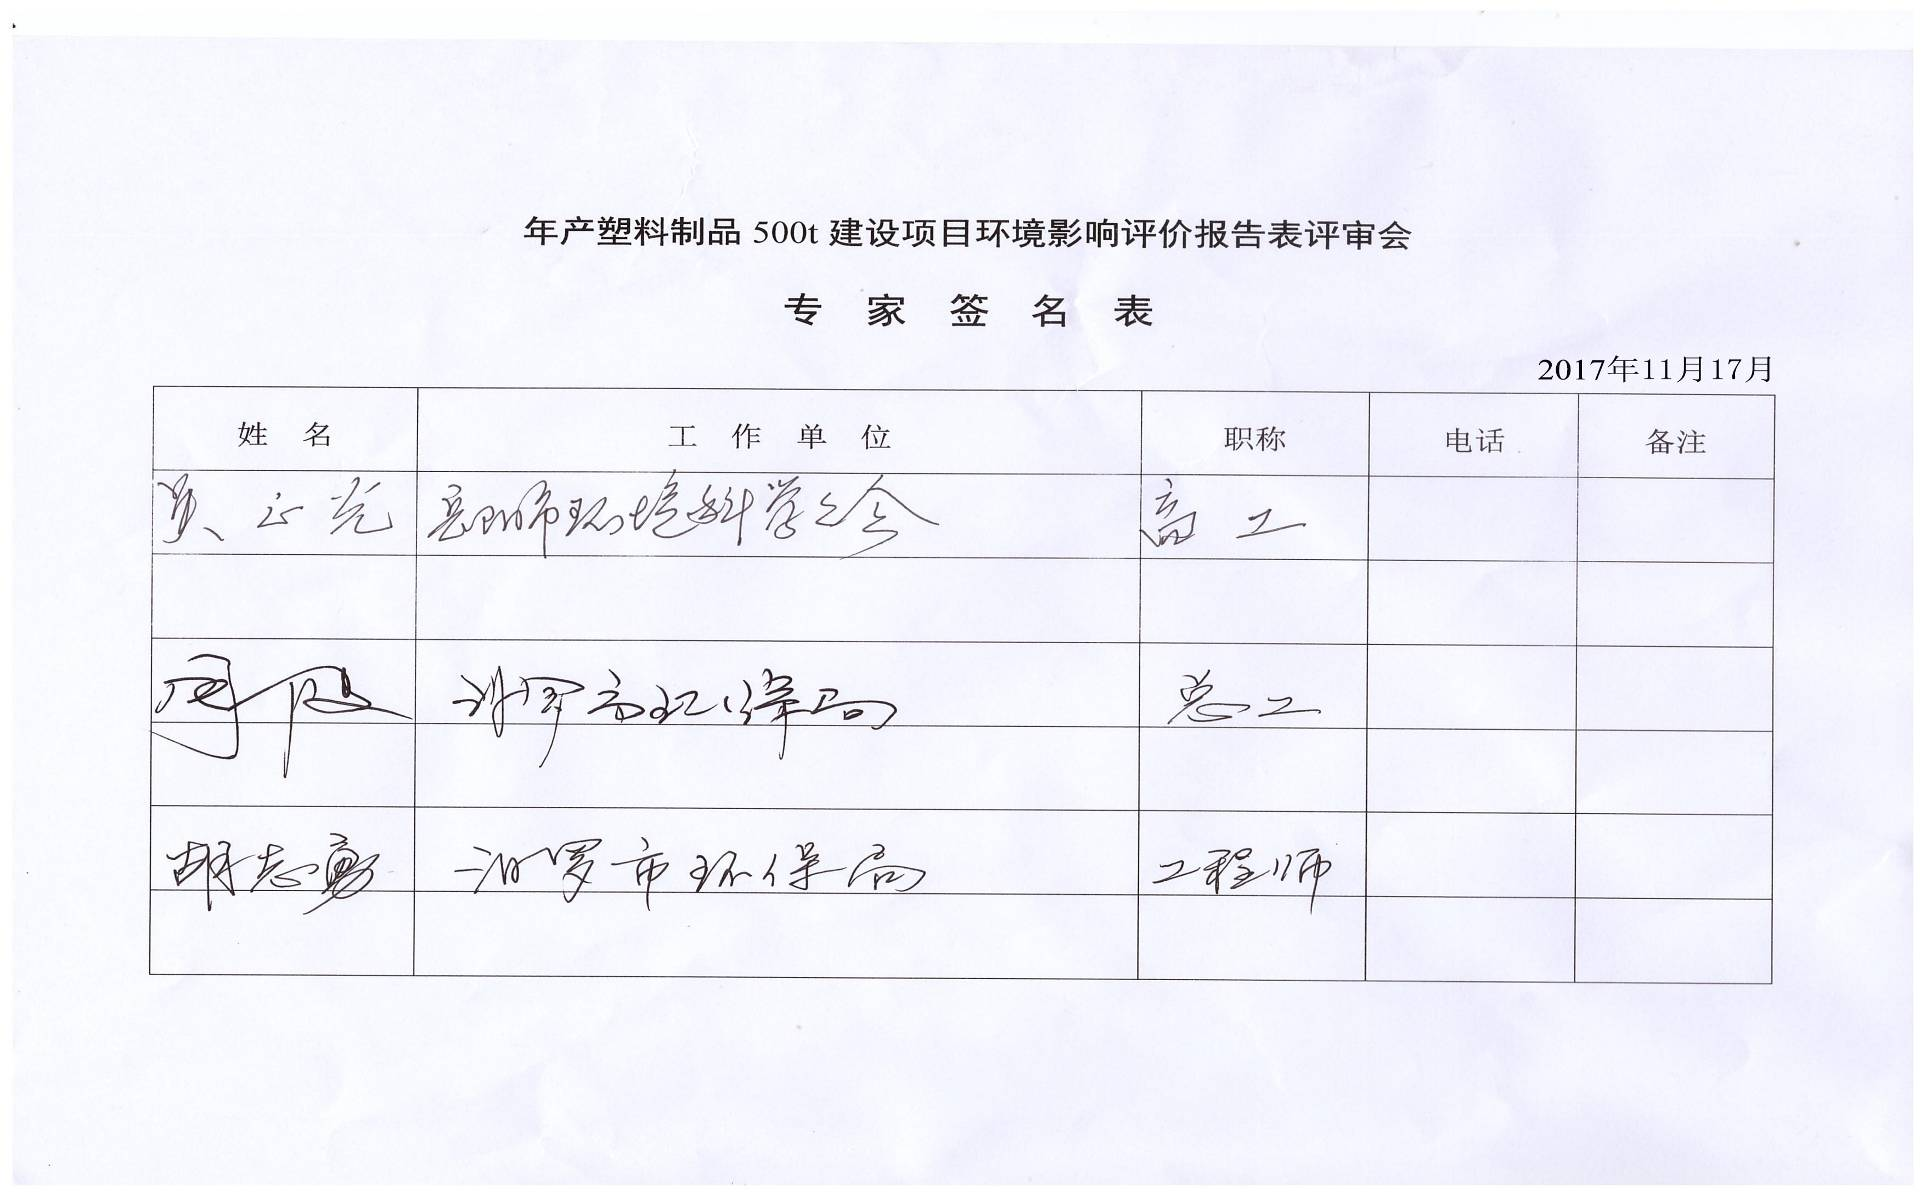 年产塑料制品 500t 建设项目环境影响评价报告表评审会
专 家 签 名 表
2017年11月17月
姓 名 工 作 单 位 职称 电话 备注
吴正光 岳阳市环境科学学会 高工
周 汨罗市环保局 总工
胡志勇 汨罗市环保局 工程师